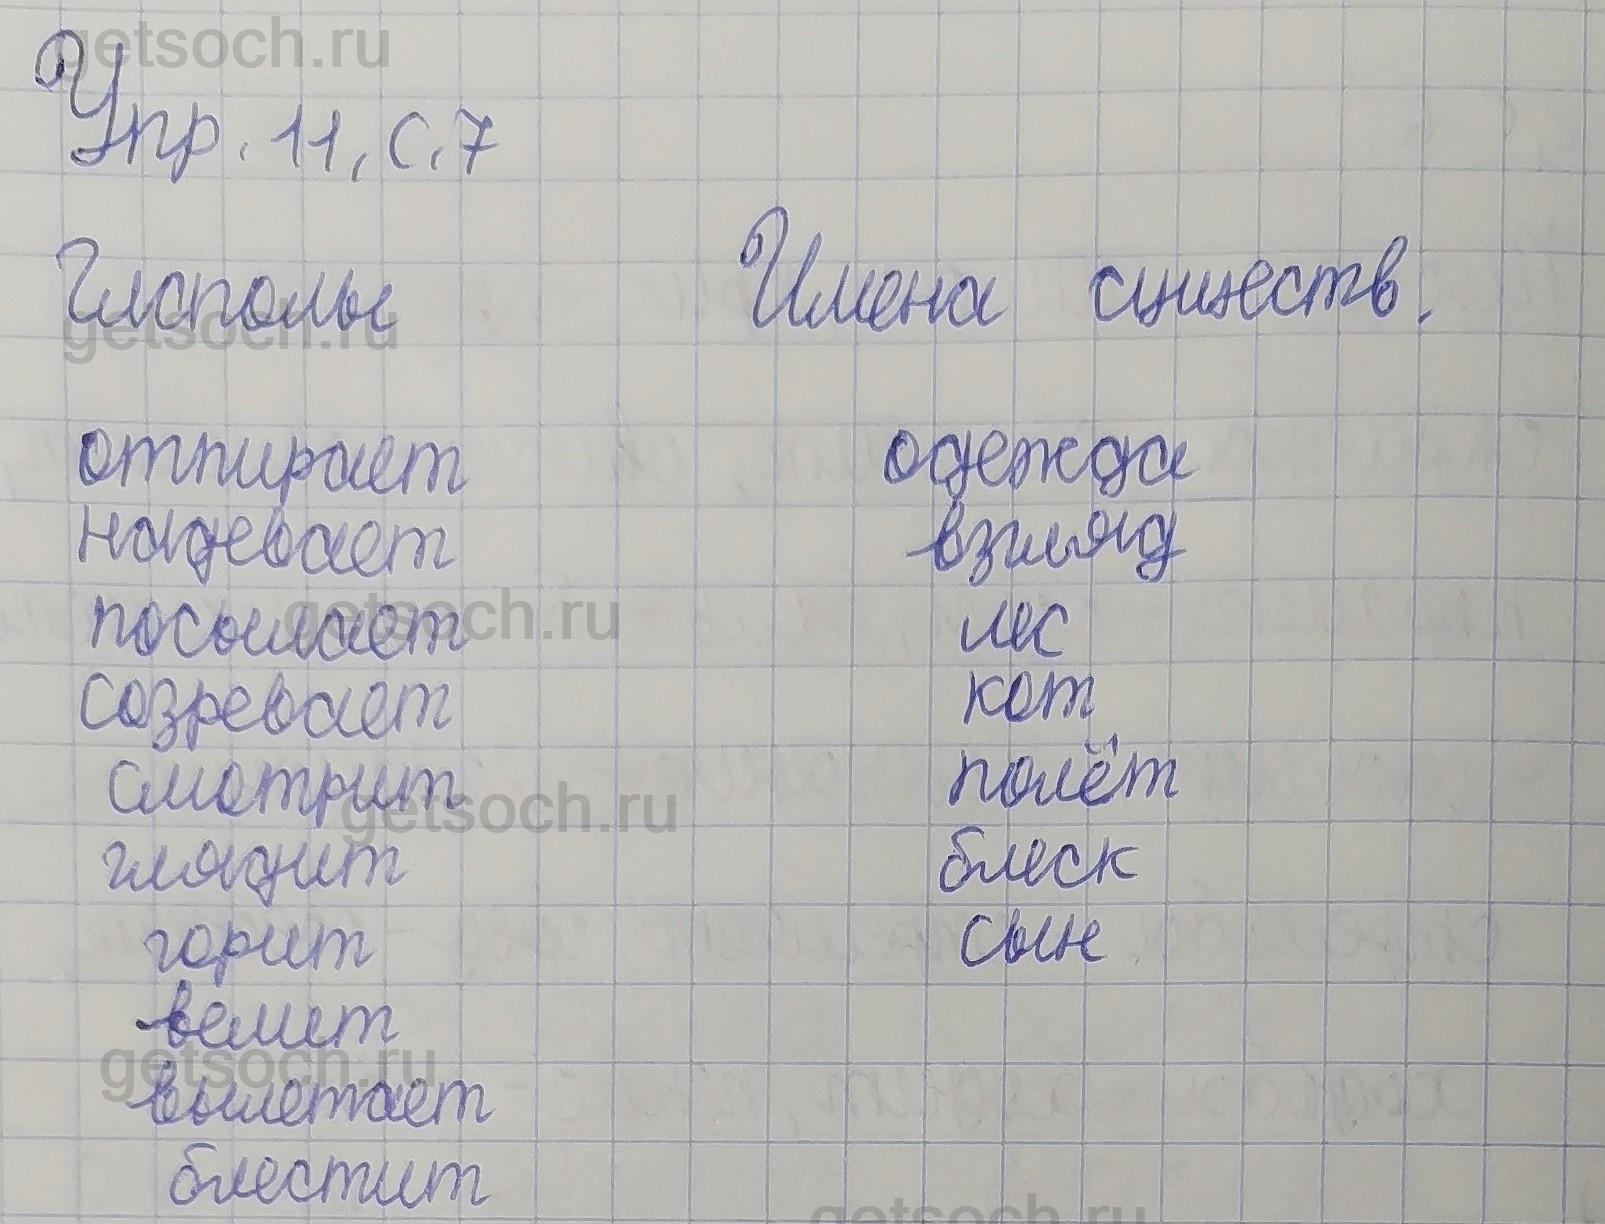 getsoch.ru
Упр. 11, с. 7
Глаголы Имена существ.
getsoch.ru
отпирает одежда
надевает взгляд
посылает лес
getsoch.ru
созревает кот
смотрит полёт
getsoch.ru
глядит блеск
горит сын
велит
getsoch.ru
вылетает
блестит
getsoch.ru